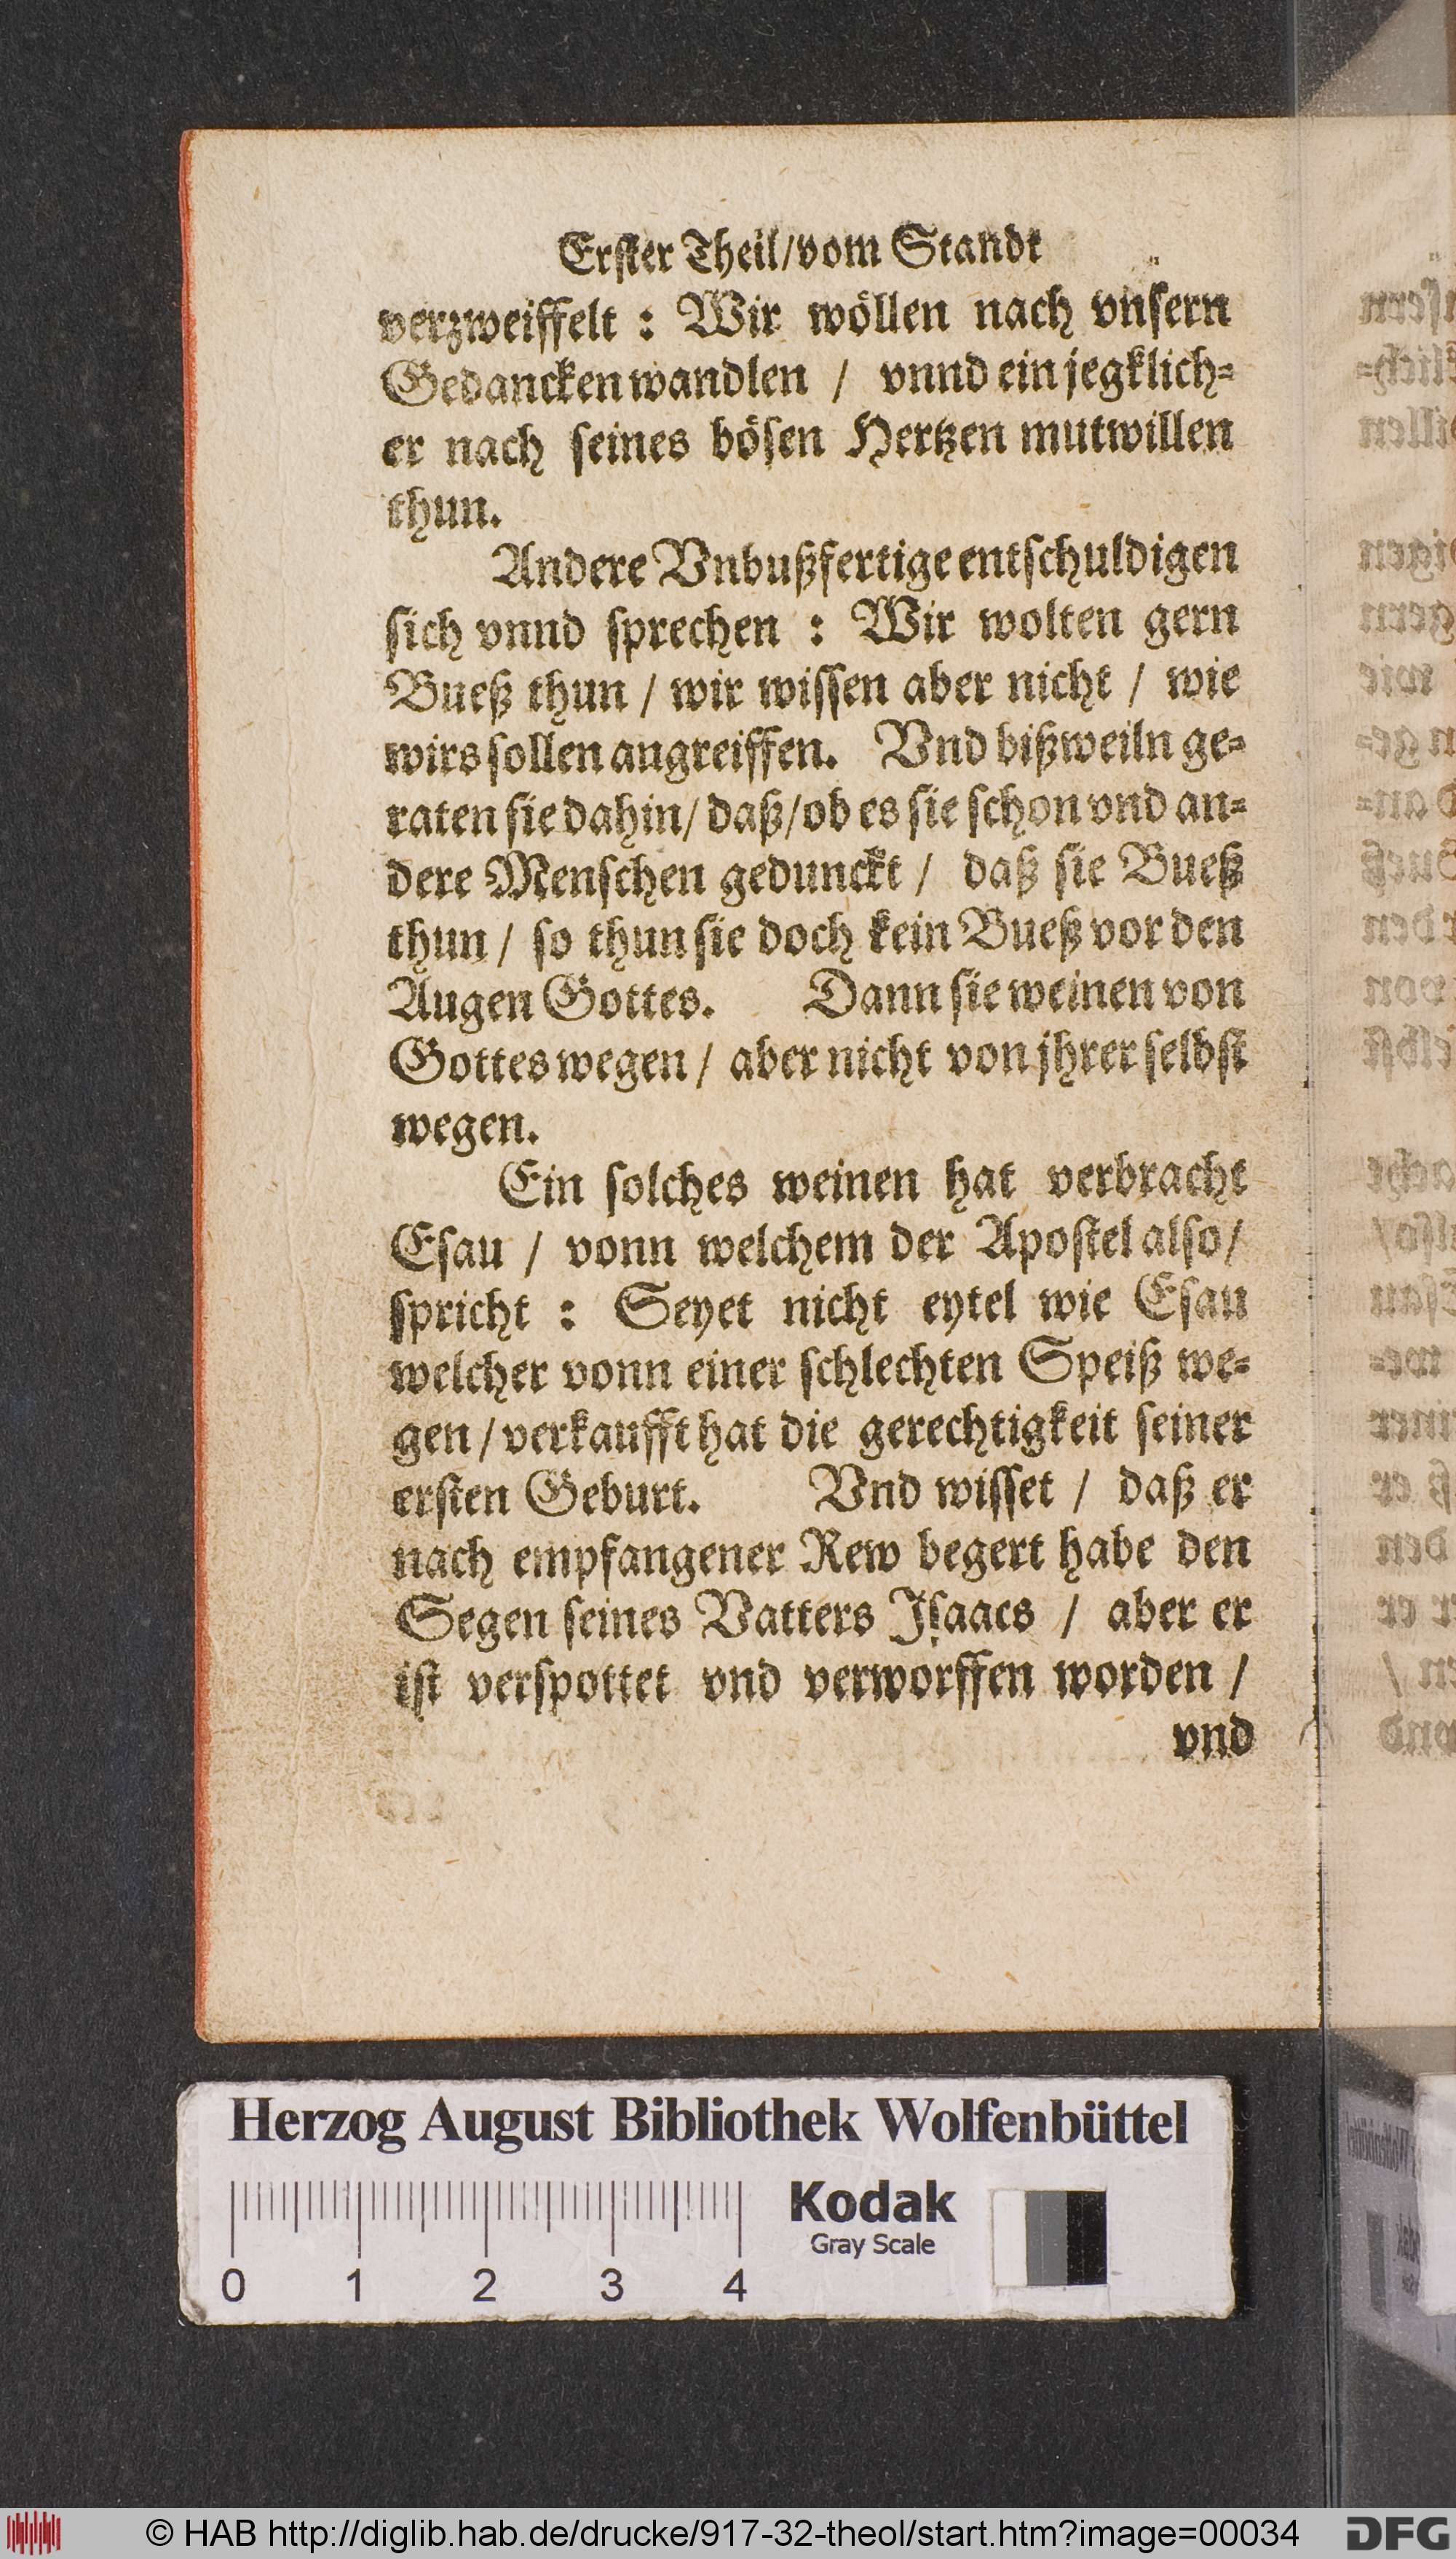 Erster Theil/vom Standt
verzweiffelt : Wir wöllen nach vnsern
Gedancken wandlen / vnnd ein jegklich=
er nach seines bösen Hertzen mutwillen
thun.
Andere Vnbußfertige entschuldigen
sich vnnd sprechen : Wir wolten gern
Bueß thun / wir wissen aber nicht / wie
wirs sollen angreiffen. Vnd bißweiln ge=
raten sie dahin/ daß/ob es sie schon vnd an=
dere Menschen gedunckt / daß sie Bueß
thun / so thun sie doch kein Bueß vor den
Augen Gottes. Dann sie weinen von
Gottes wegen / aber nicht von jhrer selbst
wegen.
Ein solches weinen hat verbracht
Esau / vonn welchem der Apostel also/
spricht : Seyet nicht eytel wie Esau
welcher vonn einer schlechten Speiß we=
gen / verkaufft hat die gerechtigkeit seiner
ersten Geburt. Vnd wisset / daß er
nach empfangener Rew begert habe den
Segen seines Vatters Isaacs / aber er
ist verspottet vnd verworffen worden /
vnd
Herzog August Bibliothek Wolfenbüttel
Kodak
Gray Scale
0 1 2 3 4
© HAB http://diglib.hab.de/drucke/917-32-theol/start.htm?image=00034
DFG